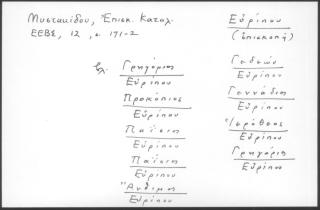 Μυστακίδου, Ἐπισκ. Κατάλ.
ΕΕΒΣ, 12, σ. 171-2
Εὐρίπου
(ἐπισκοπή)
βλ. Γρηγόριος
Εὐρίπου
Προκόπιος
Εὐρίπου
Παΐσιος
Εὐρίπου
Παΐσιος
Εὐρίπου
Ἄνθιμος
Εὐρίπου
Γεδεών
Εὐρίπου
Γεννάδιος
Εὐρίπου
Ἱερόθεος
Εὐρίπου
Γρηγόριος
Εὐρίπου